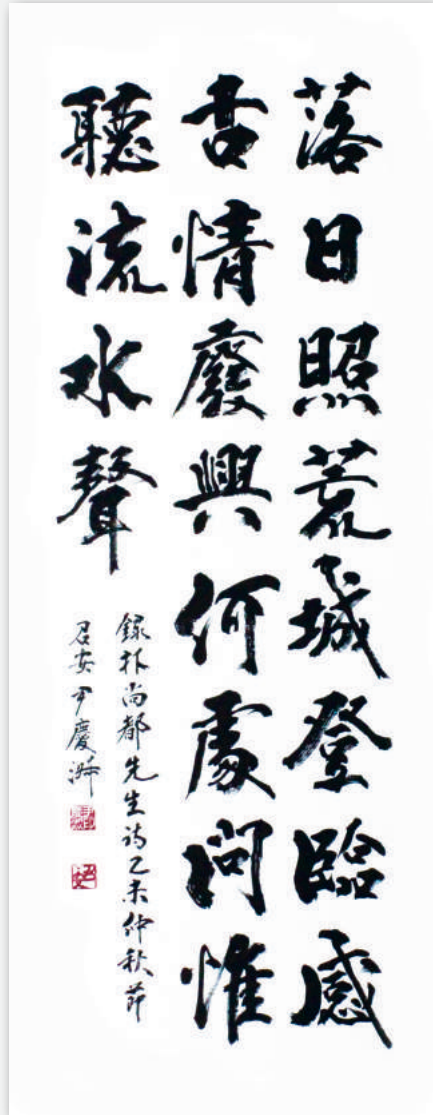 落日照荒城登臨感
古情廢興何處問惟
聽流水聲
錄朴尚都先生詩乙未仲秋節
君安尹慶